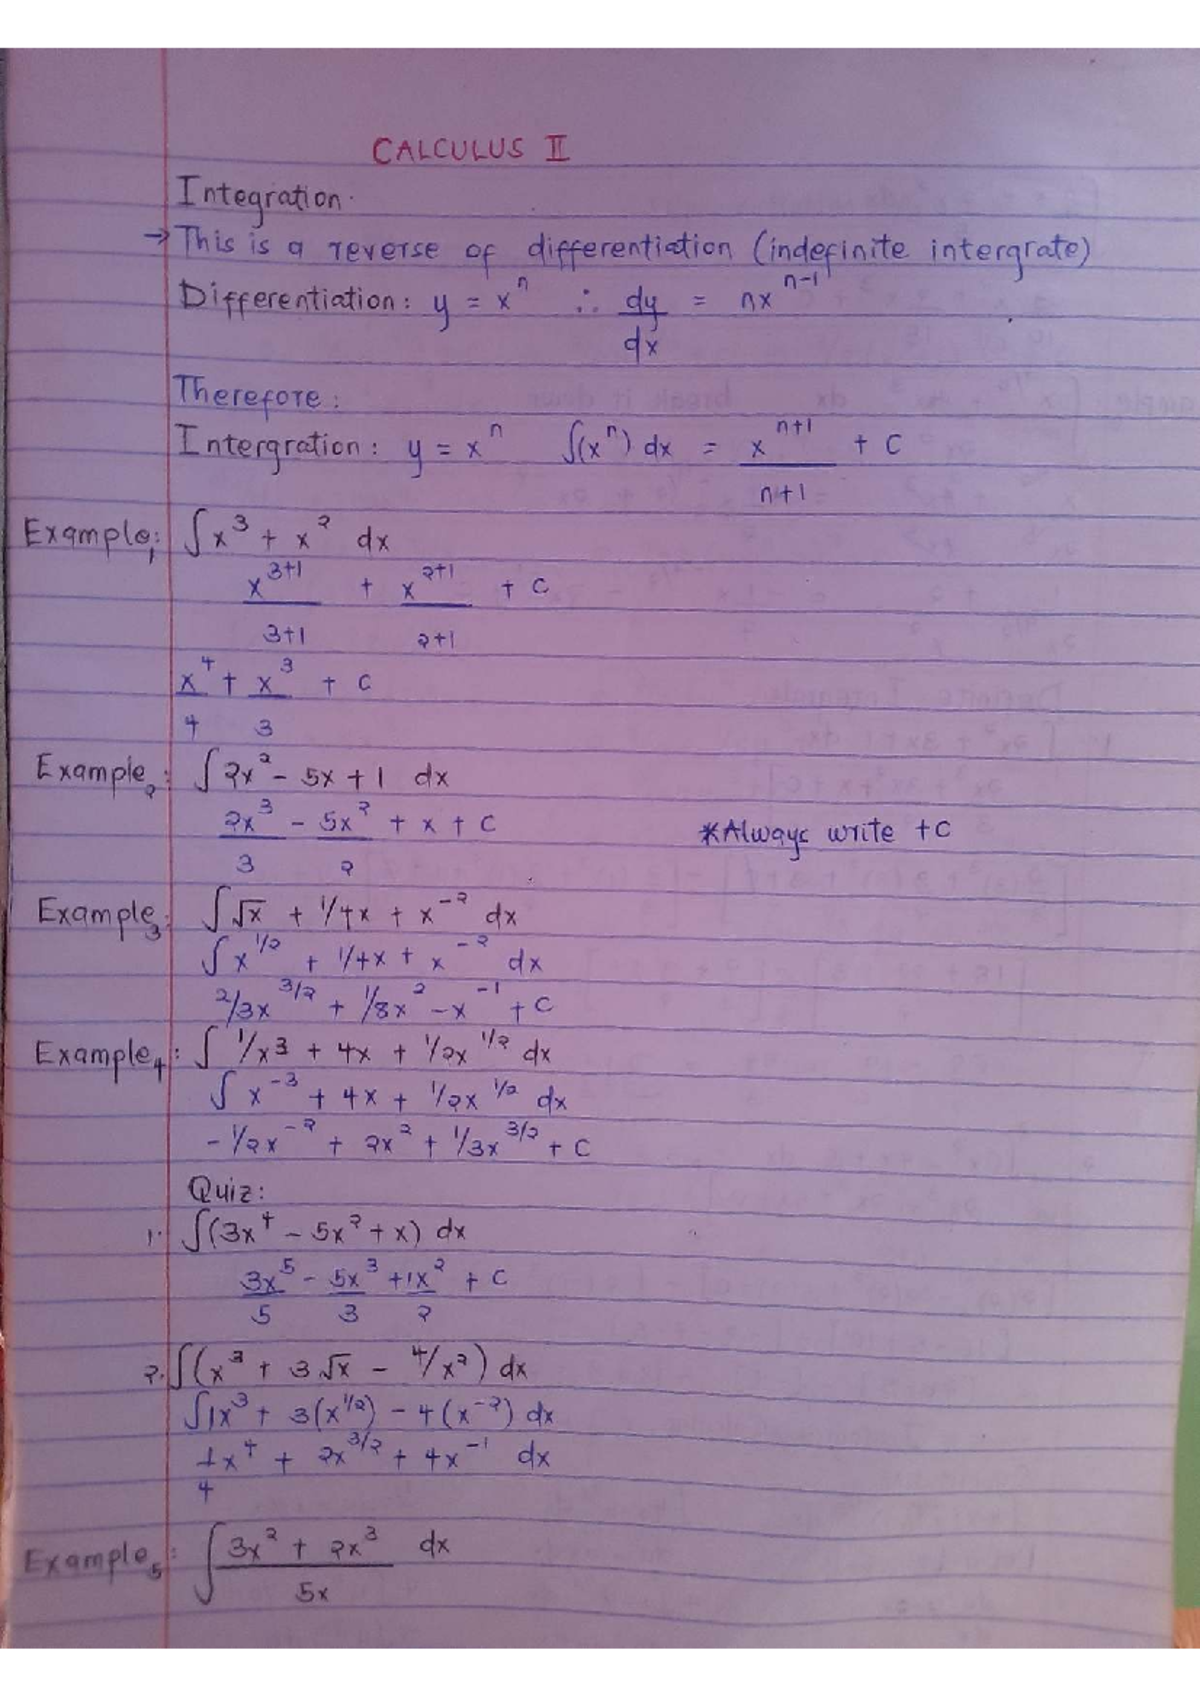 CALCULUS II
Integration.
→ This is a reverse of differentiation (indefinite intergrate)
Differentiation: y = xⁿ ∴ dy/dx = nxⁿ⁻¹
Therefore:
Intergration: y = xⁿ ∫(xⁿ) dx = xⁿ⁺¹/n+1 + C
Example₁: ∫x³ + x² dx
x³⁺¹/3+1 + x²⁺¹/2+1 + C
x⁴/4 + x³/3 + C
Example₂: ∫2x² - 5x + 1 dx
2x³/3 - 5x²/2 + x + C *Always write +C
Example₃: ∫√x + 1/4x + x⁻² dx
∫x^1/2 + 1/4x + x⁻² dx
2/3x^3/2 + 1/8x² - x⁻¹ + C
Example₄: ∫1/x³ + 4x + 1/2x^1/2 dx
∫x⁻³ + 4x + 1/2x^1/2 dx
-1/2x⁻² + 2x² + 1/3x^3/2 + C
Quiz:
1. ∫(3x⁴ - 5x² + x) dx
3x⁵/5 - 5x³/3 + 1x²/2 + C
2. ∫(x³ + 3√x - 4/x²) dx
∫1x³ + 3(x^1/2) - 4(x⁻²) dx
1/4x⁴ + 2x^3/2 + 4x⁻¹ dx
Example₅: ∫3x² + 2x³/5x dx